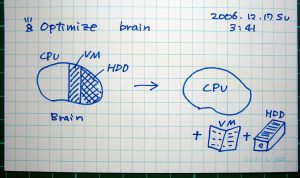 Optimize brain
2006.12.17 Su
3:41
CPU VM HDD
Brain
CPU
+ VM + HDD